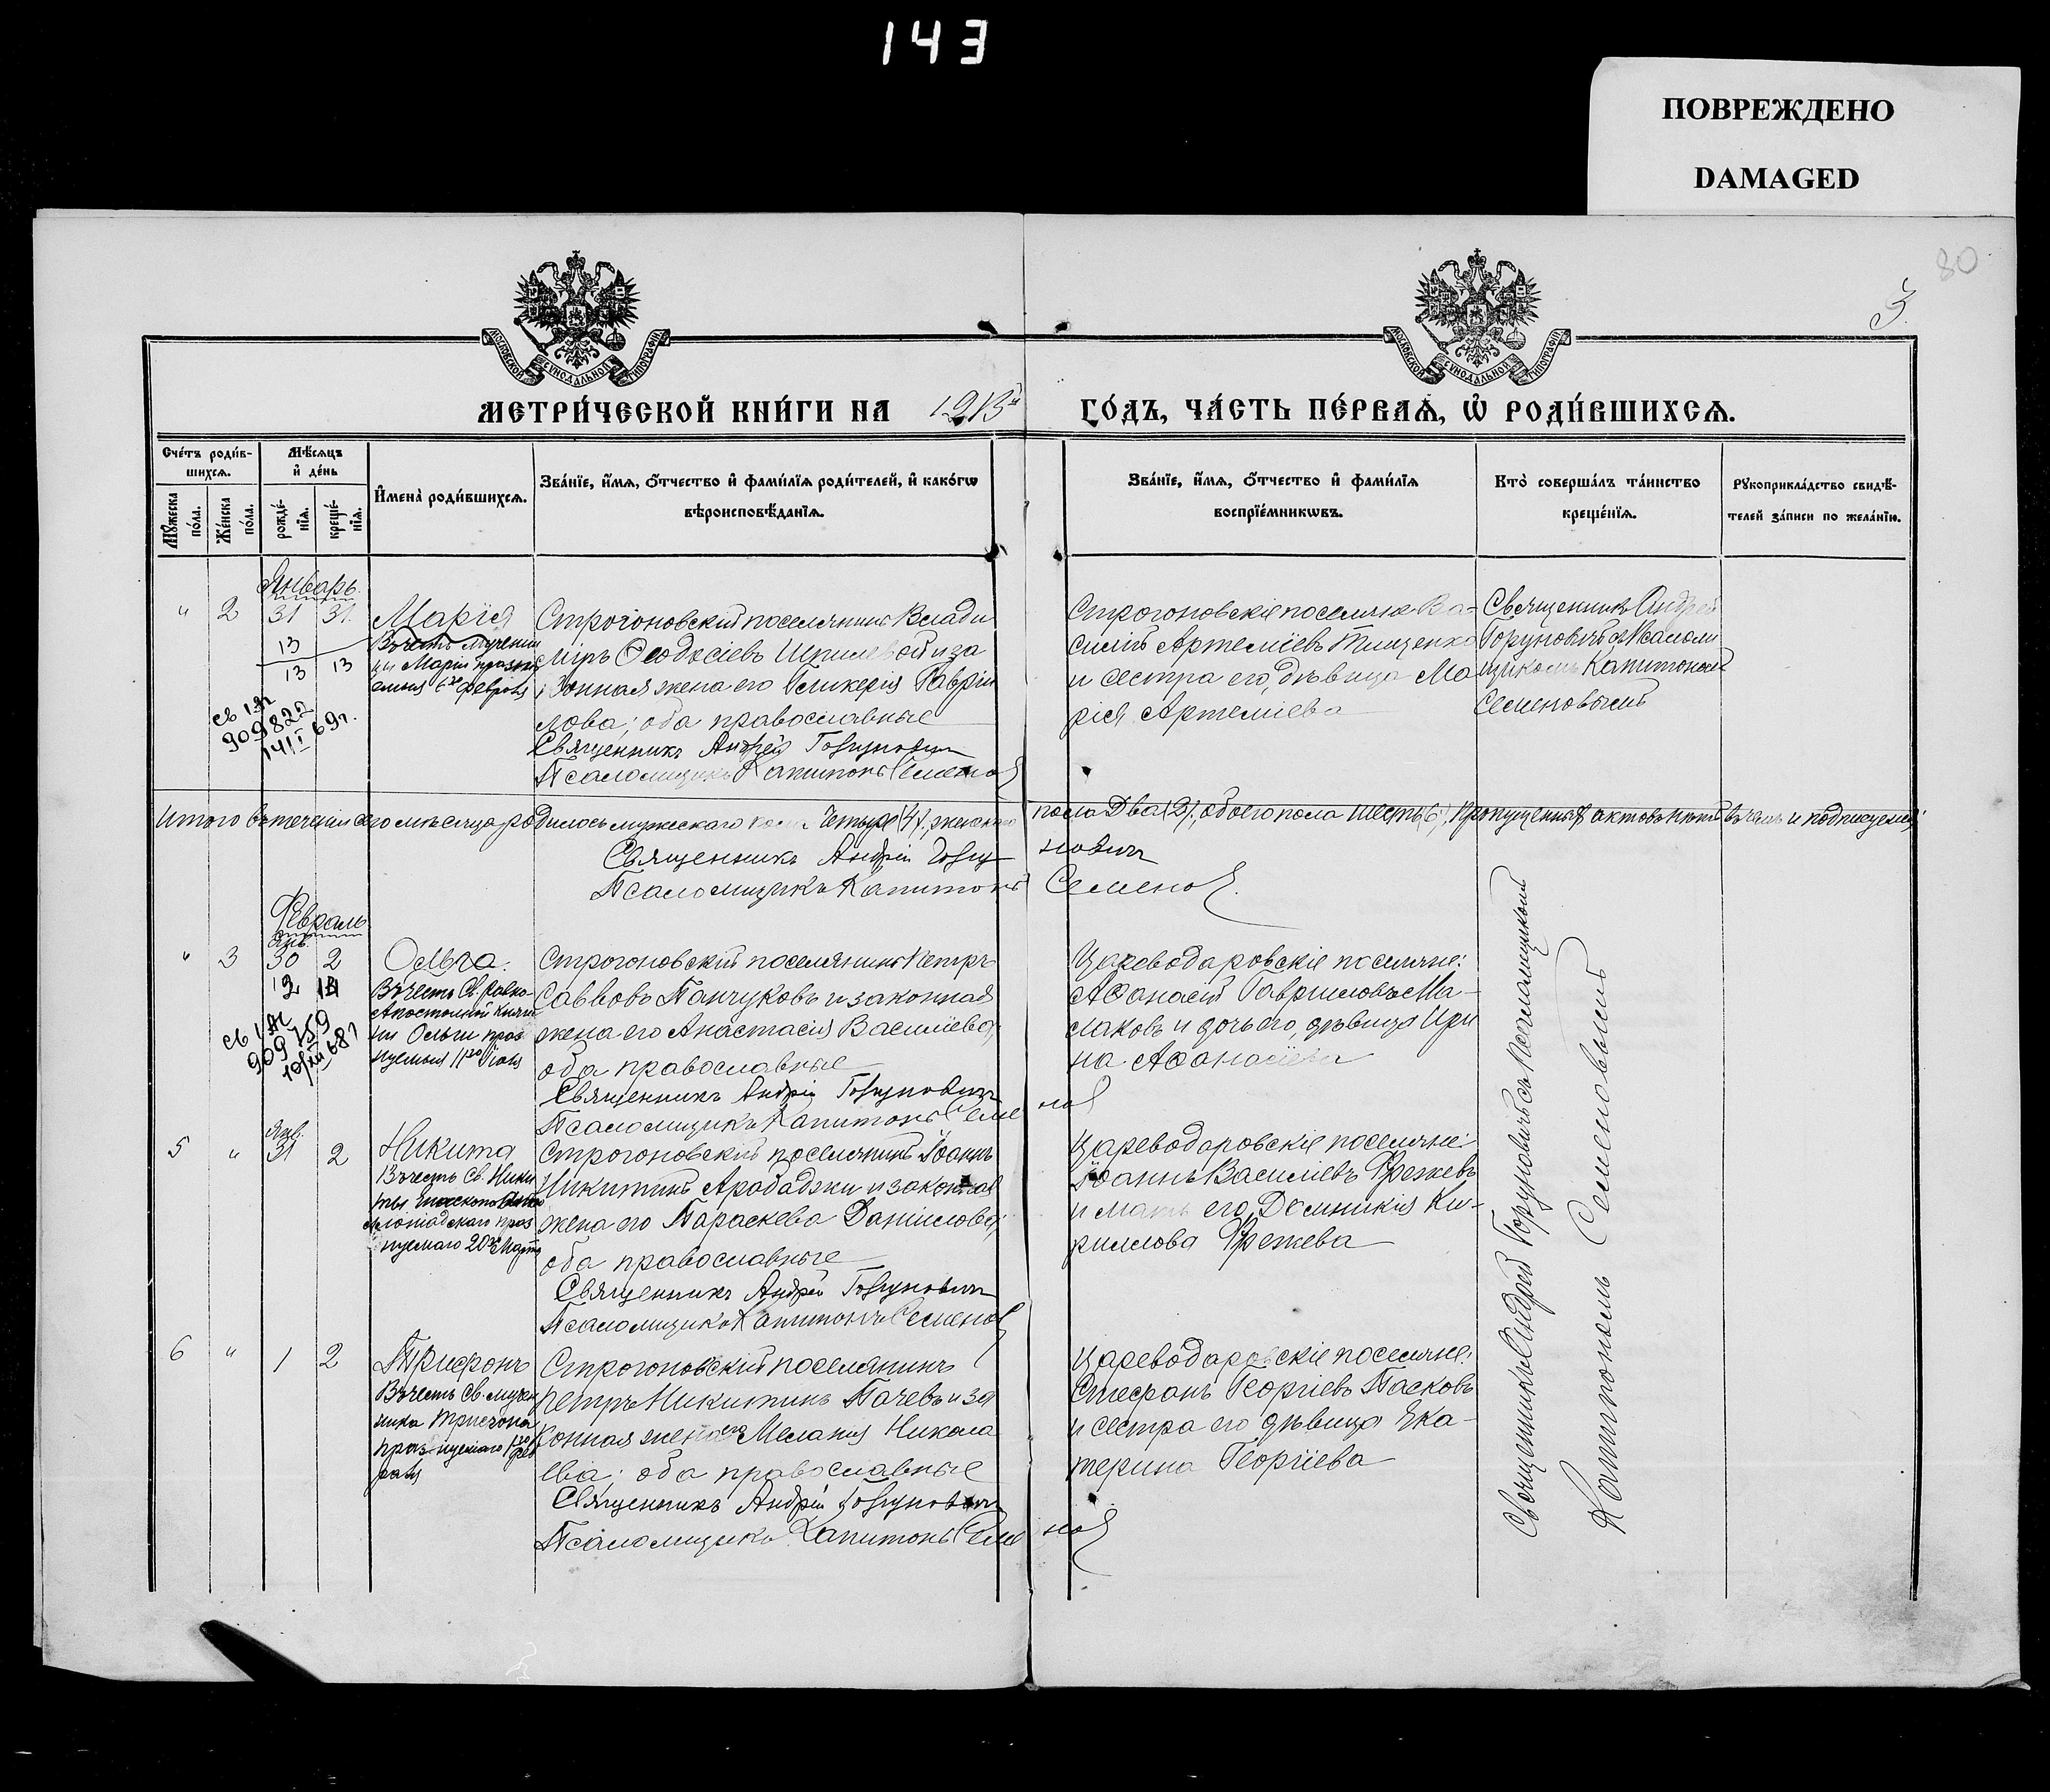 143
ПОВРЕЖДЕНО
DAMAGED
80
3.
МОСКОВСКОЙ СѴНОДАЛЬНОЙ ТИПОГРАФІИ
МОСКОВСКОЙ СѴНОДАЛЬНОЙ ТИПОГРАФІИ
МЕТРИ́ЧЕСКОЙ КНИ́ГИ НА 1913й ГО́ДЪ, ЧА́СТЬ ПЕ́РВАѦ, Ѡ҆ РОДИ́ВШИХСѦ.
Сче́тъ роди́в-
шихсѧ.
Мꙋ́жеска по́ла.
Же́нска по́ла.
Мѣ́сѧцъ
и҆ де́нь
рожде́-
нїѧ.
креще́-
нїѧ.
И҆мена̀ роди́вшихсѧ.
Зва́нїе, и҆́мѧ, ѻ҆́тчество и҆ фами́лїѧ роди́телей, и҆ како́гѡ
вѣроисповѣ́данїѧ.
Зва́нїе, и҆́мѧ, ѻ҆́тчество и҆ фами́лїѧ
воспрїе́мникѡвъ.
Кто̀ соверша́лъ та́инство
креще́нїѧ.
Рꙋкоприкла́дство свидѣ́-
телей за́писи по жела́нїю.
Январь.
" 2 31 31. Марія
13
13 13
Въ честь мучени
цы Маріи праздн
емыя 6го февраля
св 1 АГ
909822
14/I 69г.
Строгоновскій поселянинъ Влади
міръ Ѳеодосіевъ и за
конная жена его Гликерія Гаврии
лова; оба православные
Священникъ Андрей Горуновичъ
Псаломщикъ Капитонъ Семенов
Строгоновскіе поселяне Ва-
силій Артеміевъ Тищенко
и сестра его, дѣвица Ма
рія Артеміева
Священникъ Андрей
Горуновичъ съ Псалом
щикомъ Капитономъ
Семеновымъ
Итого въ теченіи сего мѣсяца родилось мужескаго пола Четыре (4), женскаго пола Два (2), обоего пола Шесть (6). Пропущенных актовъ нѣтъ въ чемъ и подписуемся:
Священникъ Андрій Горуновичъ
Псаломщикъ Капитонъ Семенов.
Февраль
Янв.
" 3 30 2 Ольга.
12
Въ честь Св. Равно-
Апостольной Княги
ни Ольги праз
нуемыя 11го Іюля
909759
Строгоновскій поселянинъ Петръ
Саввовъ Панчуковъ и законная
жена его Анастасія Василіева,
оба православные
Священникъ Андрій Горуновичъ
Псаломщикъ Капитонъ Семенов
Цареводаровскіе поселяне:
Аѳанасій Гавриловъ Ма-
лаковъ и дочь его, дѣвица Ири
на Аѳанасіева
Янв.
5 " 31 2 Никита
Въ честь Св. Ники
ты Епископа
Аполоніадскаго праз
нуемаго 20го Марта
Строгоновскій поселянинъ Іоаннъ
Никитинъ Арабаджи и законная
жена его Параскева Даніилова;
оба православные
Священникъ Андрій Горуновичъ
Псаломщикъ Капитонъ Семенов
Цареводаровскіе поселяне:
Іоаннъ Василіевъ Фрежевъ
и мать его, Домникія Ки-
риллова Фрежева
6 " 1 2 Трифонъ
Въ честь Св. мучен
ника Трифона
праз нуемаго 1го Фев
раля
Строгоновскій поселянинъ
Петръ Никитинъ Пачевъ и за
конная жена его Меланія Никола
ева; оба православные
Священникъ Андрій Горуновичъ
Псаломщикъ Капитонъ Семенов
Цареводаровскіе поселяне:
Стефанъ Георгіевъ Пасковъ
и сестра его дѣвица Ека-
терина Георгіева
Священникъ Андрей Горуновичъ съ Псаломщикомъ
Капитономъ Семеновымъ